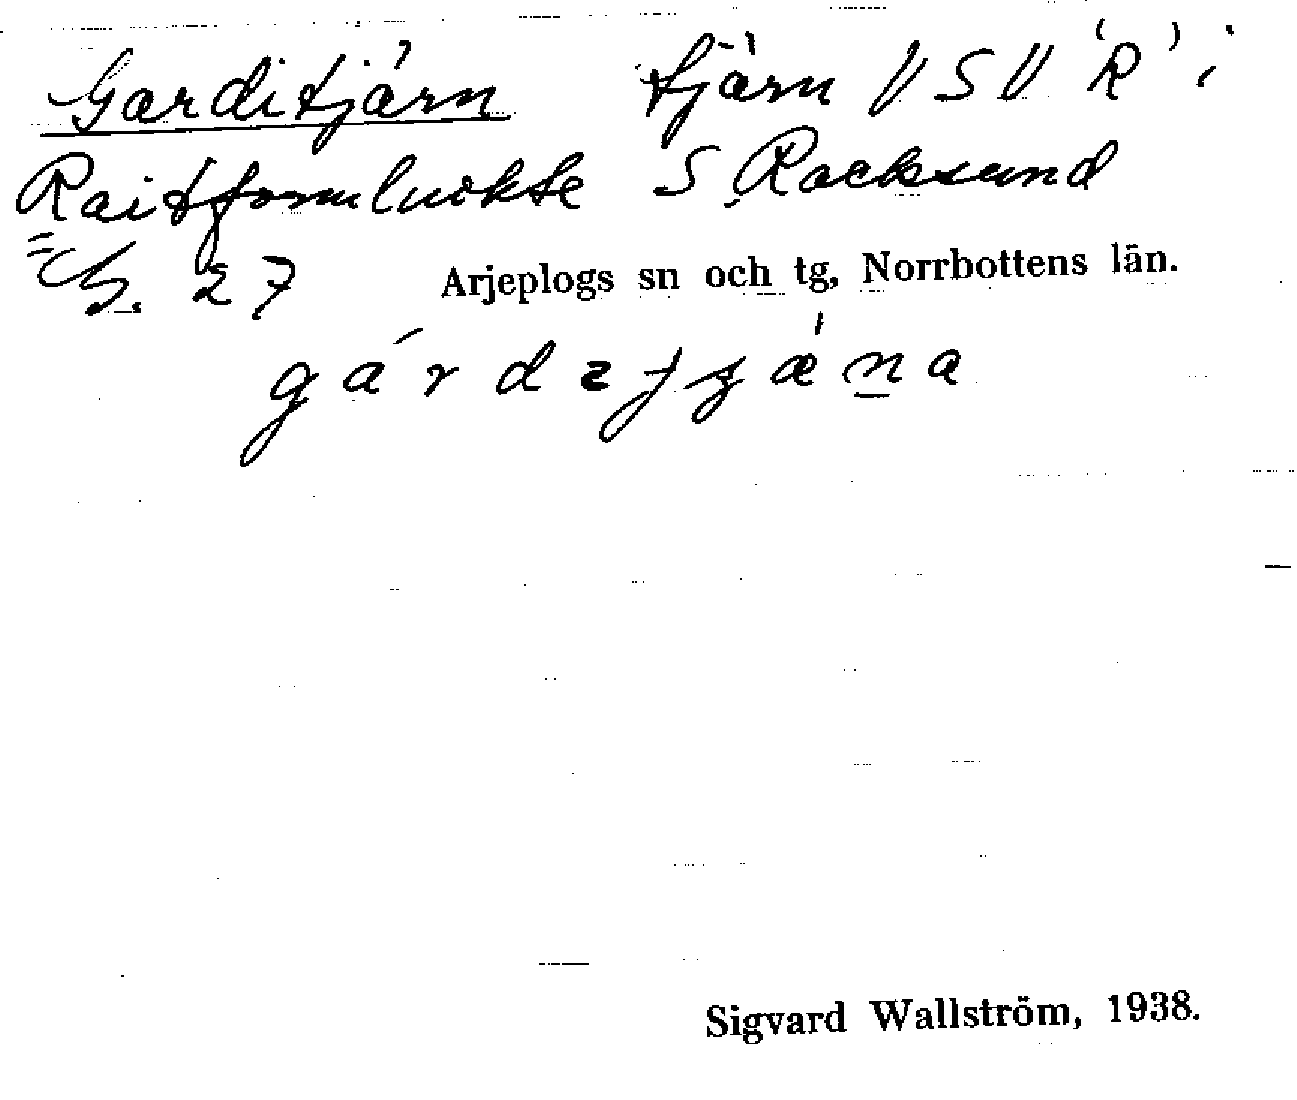 Garditjärn tjärn VSV 'R' i
Raitjomluokte S Racksund
h. 27 Arjeplogs sn och tg, Norrbottens län.
Sigvard Wallström, 1938.